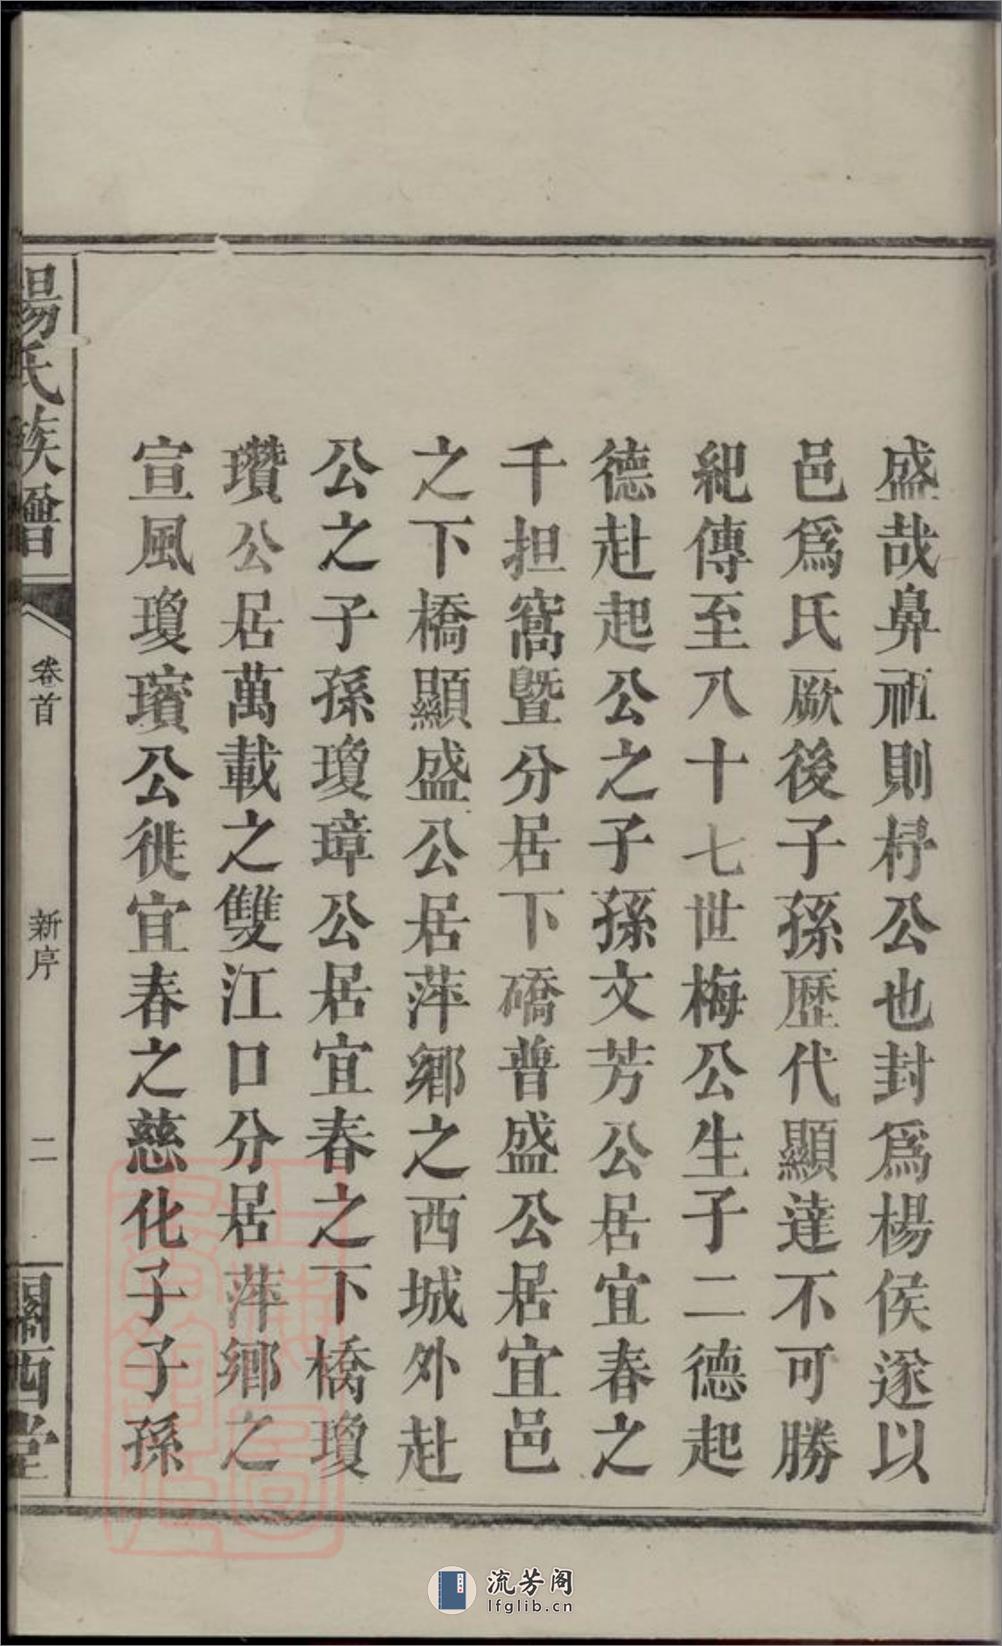 盛哉鼻祖則杼公也封爲楊侯遂以
邑爲氏厥後子孫歷代顯達不可勝
紀傳至八十七世梅公生子二德起
德赴起公之子孫文芳公居宜春之
千担窩暨分居下礄普盛公居宜邑
之下橋顯盛公居萍鄉之西城外赴
公之子孫瓊璋公居宜春之下橋瓊
瓚公居萬載之雙江口分居萍鄉之
宣風瓊璸公徙宜春之慈化子子孫
楊氏族譜
卷首
新序
二
關西堂
流芳阁
lfglib.cn